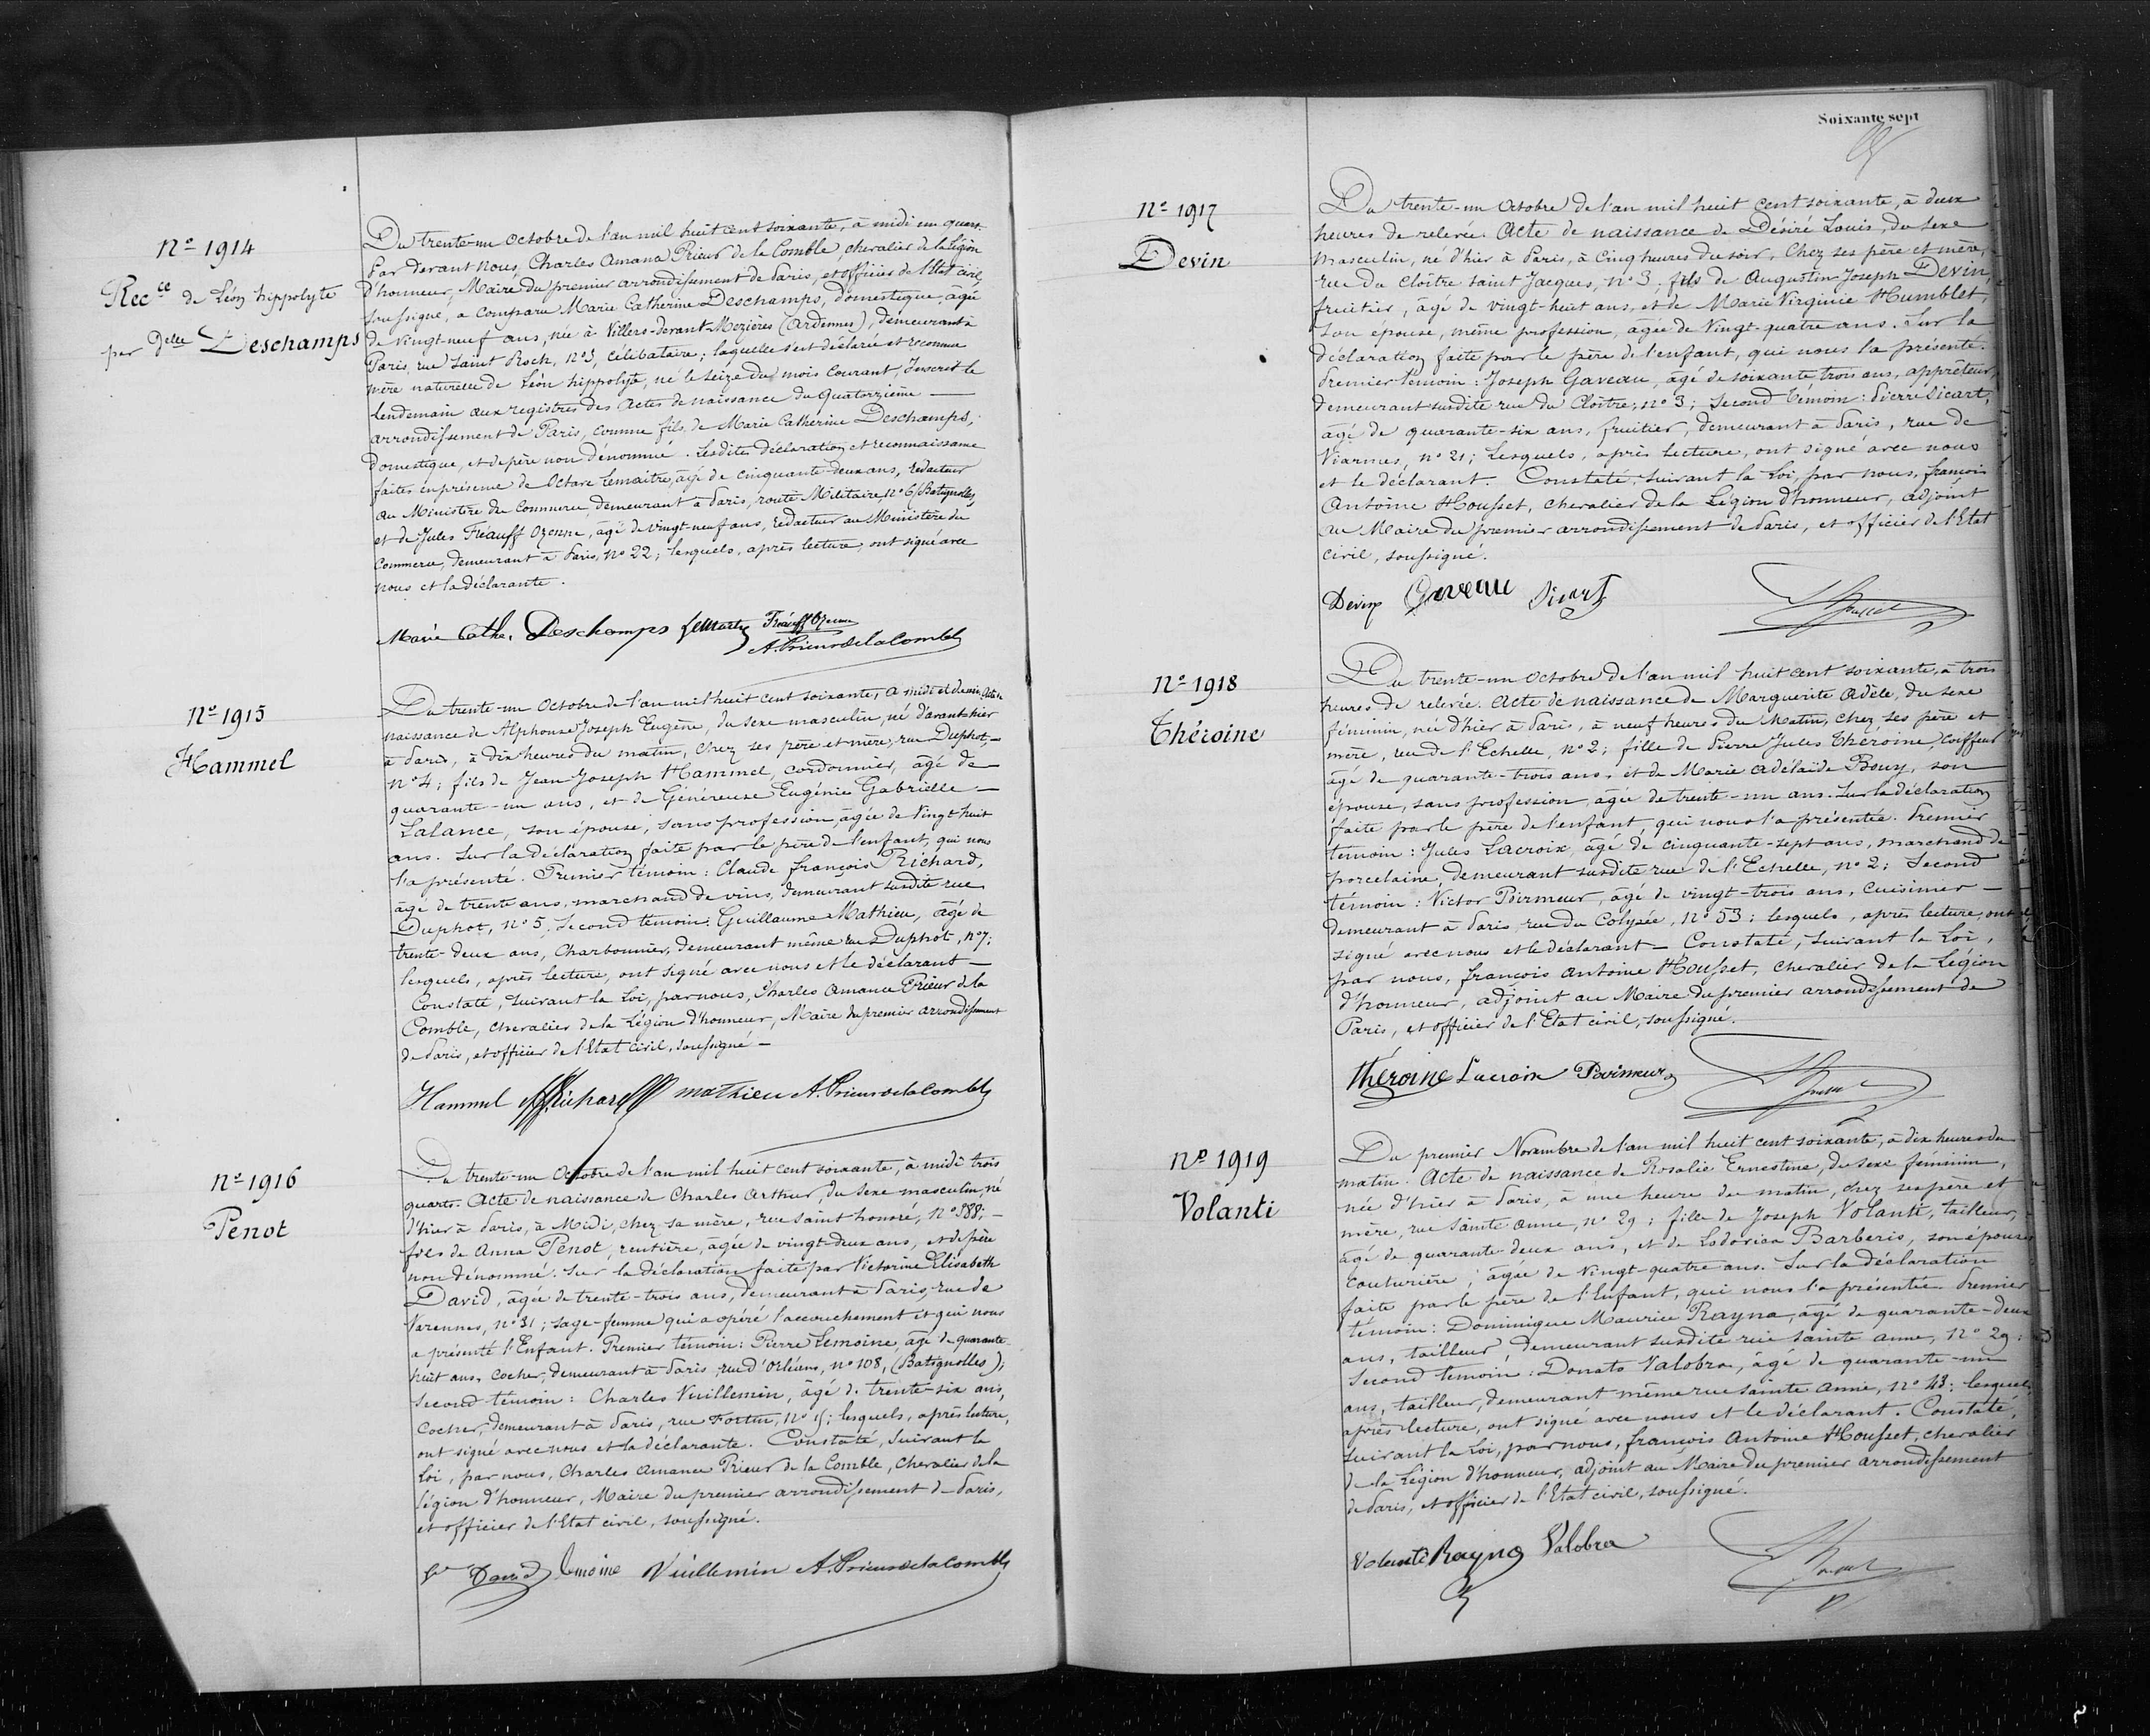 Nº 1914
Rec.ce de Léon hippolyte
par Delle Deschamps
Du trente-un octobre de l'an mil huit cent soixante, à midi un quart.
Par devant Nous, Charles Amance Prieur de la Comble, chevalier de la Légion
d'honneur, Maire du premier arrondissement de Paris, et officier de l'Etat civil,
soussigné, a comparu Marie Catherine Deschamps, domestique, âgée
de vingt-neuf ans, née à Villers-devant-Mezières (Ardennes), demeurant à
Paris, rue Saint Roch, nº 3, célibataire; laquelle s'est déclarée et reconnue
mère naturelle de Léon hippolyte, né le seize du mois courant, Inscrit le
lendemain aux registres des actes de naissance du quatorzième —
arrondissement de Paris, comme fils de Marie Catherine Deschamps,
domestique, et de père non dénommé. Lesdites déclaration et reconnaissance
faites en présence de Octave Lemaitre, âgé de cinquante-deux ans, Rédacteur
au Ministère du Commerce, demeurant à Paris, route Militaire, nº 6 (Batignolles)
et de Jules Fréauff Ozenne, âgé de vingt-neuf ans, rédacteur au Ministère du
Commerce, demeurant à Paris, nº 22; lesquels, après lecture, ont signé avec
nous et la déclarante.
Marie Cathe. Deschamps Lemaitre Fréauff Ozenne
A. Prieur de la Comble
Nº 1915
Hammel
Du trente-un Octobre de l'an mil huit cent soixante, à midi et demi, Acte de
naissance de Alphonse Joseph Eugène, du sexe masculin, né d'avant-hier
à Paris, à dix heures du matin, chez ses père et mère, rue Duphot, —
nº 4; fils de Jean Joseph Hammel, cordonnier, âgé de —
quarante-un ans, et de Généreuse Eugénie Gabrielle —
Lalance, son épouse, sans profession, âgée de vingt-huit
ans. Sur la déclaration faite par le père de l'enfant, qui nous
l'a présenté. Premier témoin: Claude françois Richard,
âgé de trente ans, marchand de vins, demeurant susdite rue
Duphot, nº 5, Second témoin: Guillaume Mathieu, âgé de
trente-deux ans, Charbonnier, demeurant même rue Duphot, nº 7;
lesquels, après lecture, ont signé avec nous et le déclarant —
Constaté, suivant la Loi, par nous, Charles Amance Prieur de la
Comble, chevalier de la Légion d'honneur, Maire du premier arrondissement
de Paris, et officier de l'Etat civil, soussigné —
Hammel Richard mathieu A. Prieur de la Comble
Nº 1916
Penot
Du trente-un Octobre de l'an mil huit cent soixante, à midi trois
quarts. Acte de naissance de Charles Arthur, du sexe masculin, né
d'hier à Paris, à Midi, chez sa mère, rue saint honoré, nº 388; —
fils de Anna Penot, rentière, âgée de vingt-deux ans, et de père
non dénommé. Sur la déclaration faite par Victorine Elisabeth
David, âgée de trente-trois ans, demeurant à Paris, rue de
Varennes, nº 31; sage-femme qui a opéré l'accouchement et qui nous
a présenté l'Enfant. Premier témoin: Pierre Lemoine, âgé de quarante-
huit ans, cocher, demeurant à Paris, rue d'Orléans, nº 108, (Batignolles);
second témoin: Charles Vuillemin, âgé de trente-six ans,
cocher, demeurant à Paris, rue Fortin, nº 15; lesquels, après lecture,
ont signé avec nous et la déclarante. Constaté, suivant la
Loi, par nous, Charles Amance Prieur de la Comble, Chevalier de la
Légion d'honneur, Maire du premier arrondissement de Paris,
et officier de l'Etat civil, soussigné.
David Lemoine Vuillemin A. Prieur de la Comble
Soixante sept
Nº 1917
Devin
Du trente-un Octobre de l'an mil huit cent soixante, à deux
heures de relevée. Acte de naissance de Désiré Louis, du sexe
masculin, né d'hier à Paris, à cinq heures du soir, chez ses père et mère,
rue du Cloître saint Jacques, nº 3, fils de Augustin Joseph Devin,
fruitier, âgé de vingt-huit ans, et de Marie Virginie Humblet,
son épouse, même profession, âgée de vingt-quatre ans. Sur la
déclaration faite par le père de l'enfant, qui nous l'a présenté.
Premier témoin: Joseph Gaveau, âgé de soixante trois ans, apprêteur,
demeurant susdite rue du Cloître, nº 3; Second témoin: Pierre Sicart,
âgé de quarante-six ans, fruitier, demeurant à Paris, rue de
Viarmes, nº 21; Lesquels, après lecture, ont signé avec nous
et le déclarant. Constaté, suivant la Loi, par nous, françois
Antoine Housset, chevalier de la Légion d'honneur, adjoint
au Maire du premier arrondissement de Paris, et officier de l'Etat
civil, soussigné.
Devin Gaveau Sicart Housset
Nº 1918
Théroine
Du trente-un octobre de l'an mil huit cent soixante, à trois
heures de relevée. Acte de naissance de Marguerite Adèle, du sexe
féminin, née d'hier à Paris, à neuf heures du matin, chez ses père et
mère, rue de l'Echelle, nº 2; fille de Pierre Jules Théroine, coiffeur
âgé de quarante-trois ans, et de Marie Adélaïde Bouy, son
épouse, sans profession, âgée de trente-un ans. Sur la déclaration
faite par le père de l'enfant, qui nous l'a présentée. Premier
témoin: Jules Lacroix, âgé de cinquante-sept ans, marchand de
porcelaine, demeurant susdite rue de l'Echelle, nº 2; Second
témoin: Victor Poirmeur, âgé de vingt-trois ans, cuisinier —
demeurant à Paris, rue du Colysée, nº 53: lesquels, après lecture, ont
signé avec nous et le déclarant — Constaté, suivant la Loi,
par nous, françois Antoine Housset, chevalier de la Légion
d'honneur, adjoint au Maire du premier arrondissement de
Paris, et officier de l'Etat civil, soussigné.
Théroine Lacroix Poirmeur Housset
Nº 1919
Volanti
Du premier Novembre de l'an mil huit cent soixante, à dix heures du
matin. Acte de naissance de Rosalie Ernestine, du sexe féminin,
née d'hier à Paris, à une heure du matin, chez ses père et
mère, rue Sainte anne, nº 29; fille de Joseph Volanti, tailleur,
âgé de quarante-deux ans, et de Lodovica Barberis, son épouse
couturière, âgée de vingt-quatre ans. Sur la déclaration
faite par le père de l'Enfant, qui nous l'a présentée. Premier
témoin: Dominique Maurice Rayna, âgé de quarante-deux
ans, tailleur, demeurant susdite rue sainte anne, nº 29:
Second témoin: Donato Valobra, âgé de quarante-un
ans, tailleur, demeurant même rue sainte anne, nº 43: lesquels,
après lecture, ont signé avec nous et le déclarant. Constaté,
suivant la Loi, par nous, françois Antoine Housset, chevalier
de la Légion d'honneur, adjoint au Maire du premier arrondissement
de Paris, et officier de l'Etat civil, soussigné.
Volanti Rayna Valobra Housset